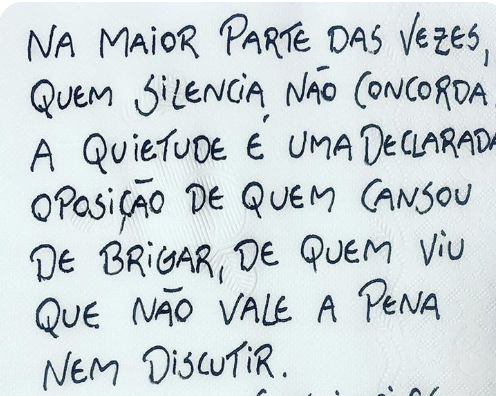 NA MAIOR PARTE DAS VEZES,
QUEM SILENCIA NÃO CONCORDA
A QUIETUDE É UMA DECLARADA
OPOSIÇÃO DE QUEM CANSOU
DE BRIGAR, DE QUEM VIU
QUE NÃO VALE A PENA
NEM DISCUTIR.